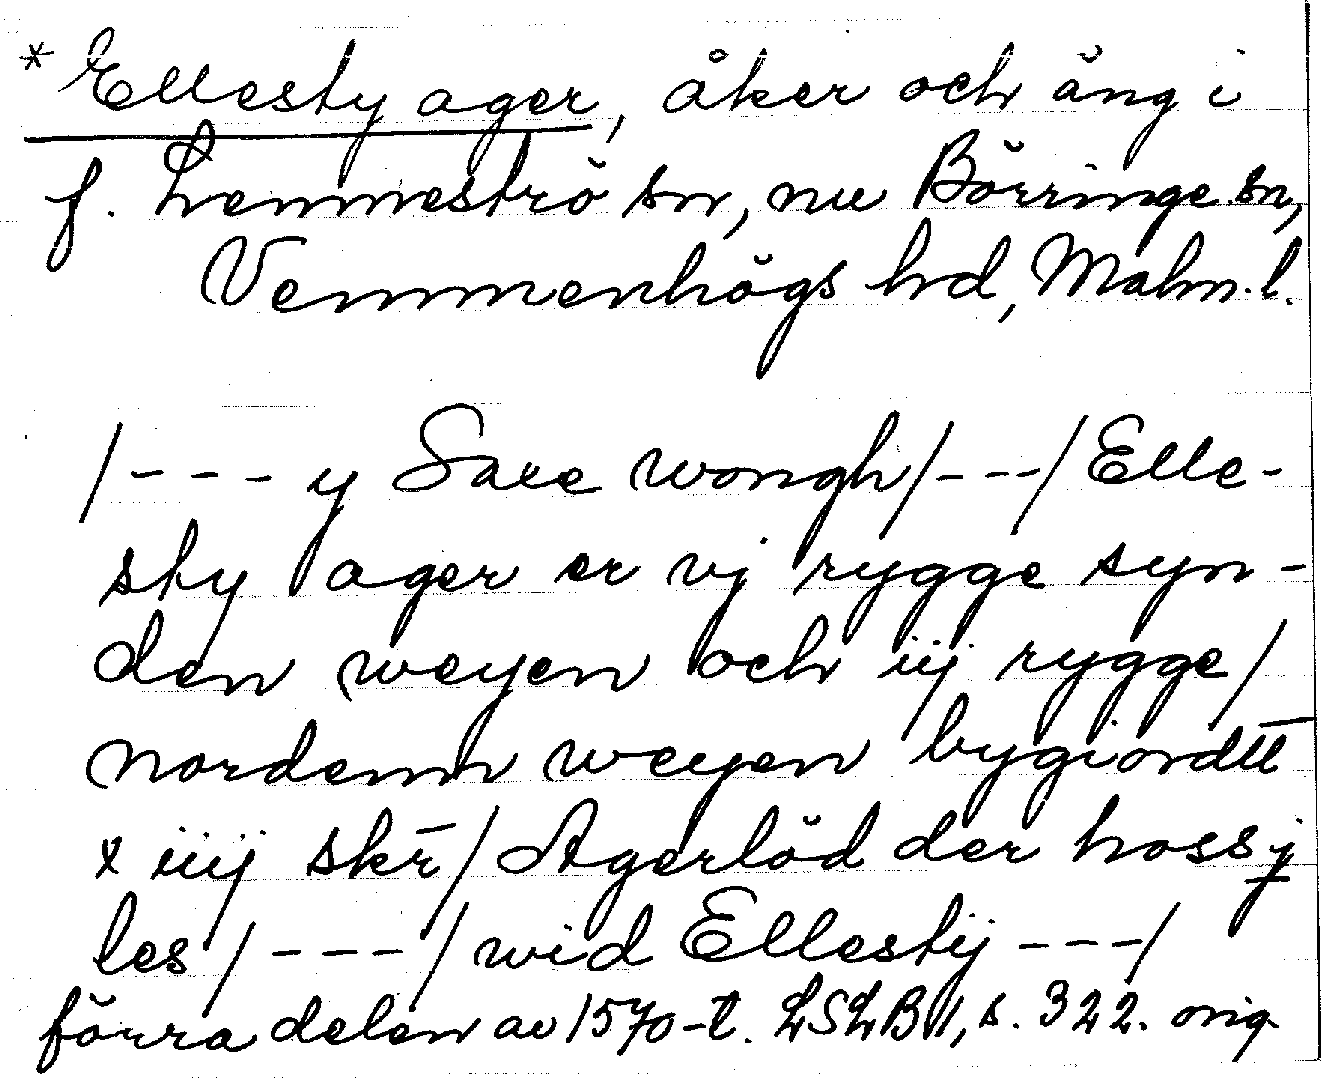 * Ellesty ager, åker och äng i
f. Lemmeströ sn, nu Börringe sn,
Vemmenhögs hd, Malm.l.
/--- y Saxe wongh/---/Elle-
sty ager er vj rygge syn-
den weyen och iij rygge/
nordenn weyen bygiordtt
x iiij skr̄/Agerlöd der hoss j
les/---/wid Ellestij ---/
förra delen av 1570-t. LSLB II, s. 322. orig